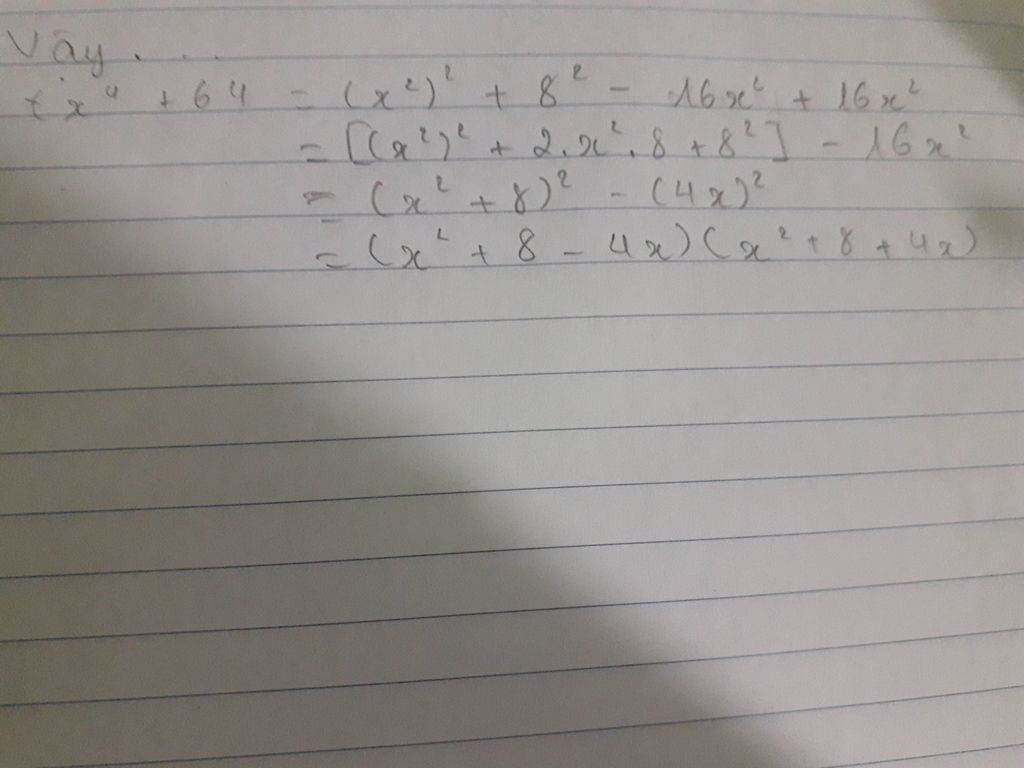 Vậy ....
x⁴ + 64 = (x²)² + 8² - 16x² + 16x²
= [(x²)² + 2.x².8 + 8²] - 16x²
= (x² + 8)² - (4x)²
= (x² + 8 - 4x)(x² + 8 + 4x)